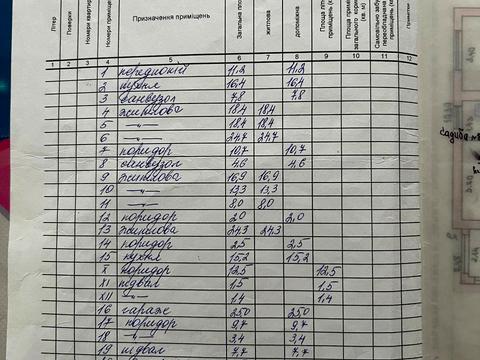 Літер
Поверхи
Номери квартир
Номери приміщень
Призначення приміщень
Загальна
житлова
допоміжна
Площа
Площа
загального
Самовільно
переобладнана
приміщень (кв. м)
Примітки
1 2 3 4 5 6 7 8 9 10 11 12
1 передпокій 11,2 11,2
2 кухня 16,4 16,4
3 санвузол 7,8 7,8
4 житлова 18,4 18,4
5 —"— 18,4 18,4
6 —"— 24,7 24,7
7 коридор 10,7 10,7
8 санвузол 4,6 4,6
9 житлова 16,9 16,9
10 —"— 13,3 13,3
11 —"— 8,0 8,0
12 коридор 2,0 2,0
13 житлова 24,3 24,3
14 коридор 2,5 2,5
15 кухня 15,2 15,2
X коридор 12,5 12,5
XI підвал 1,5 1,5
XII —"— 1,4 1,4
16 гараж 25,0 25,0
17 коридор 9,7 9,7
18 —"— 3,4 3,4
19 підвал 7,7 7,7